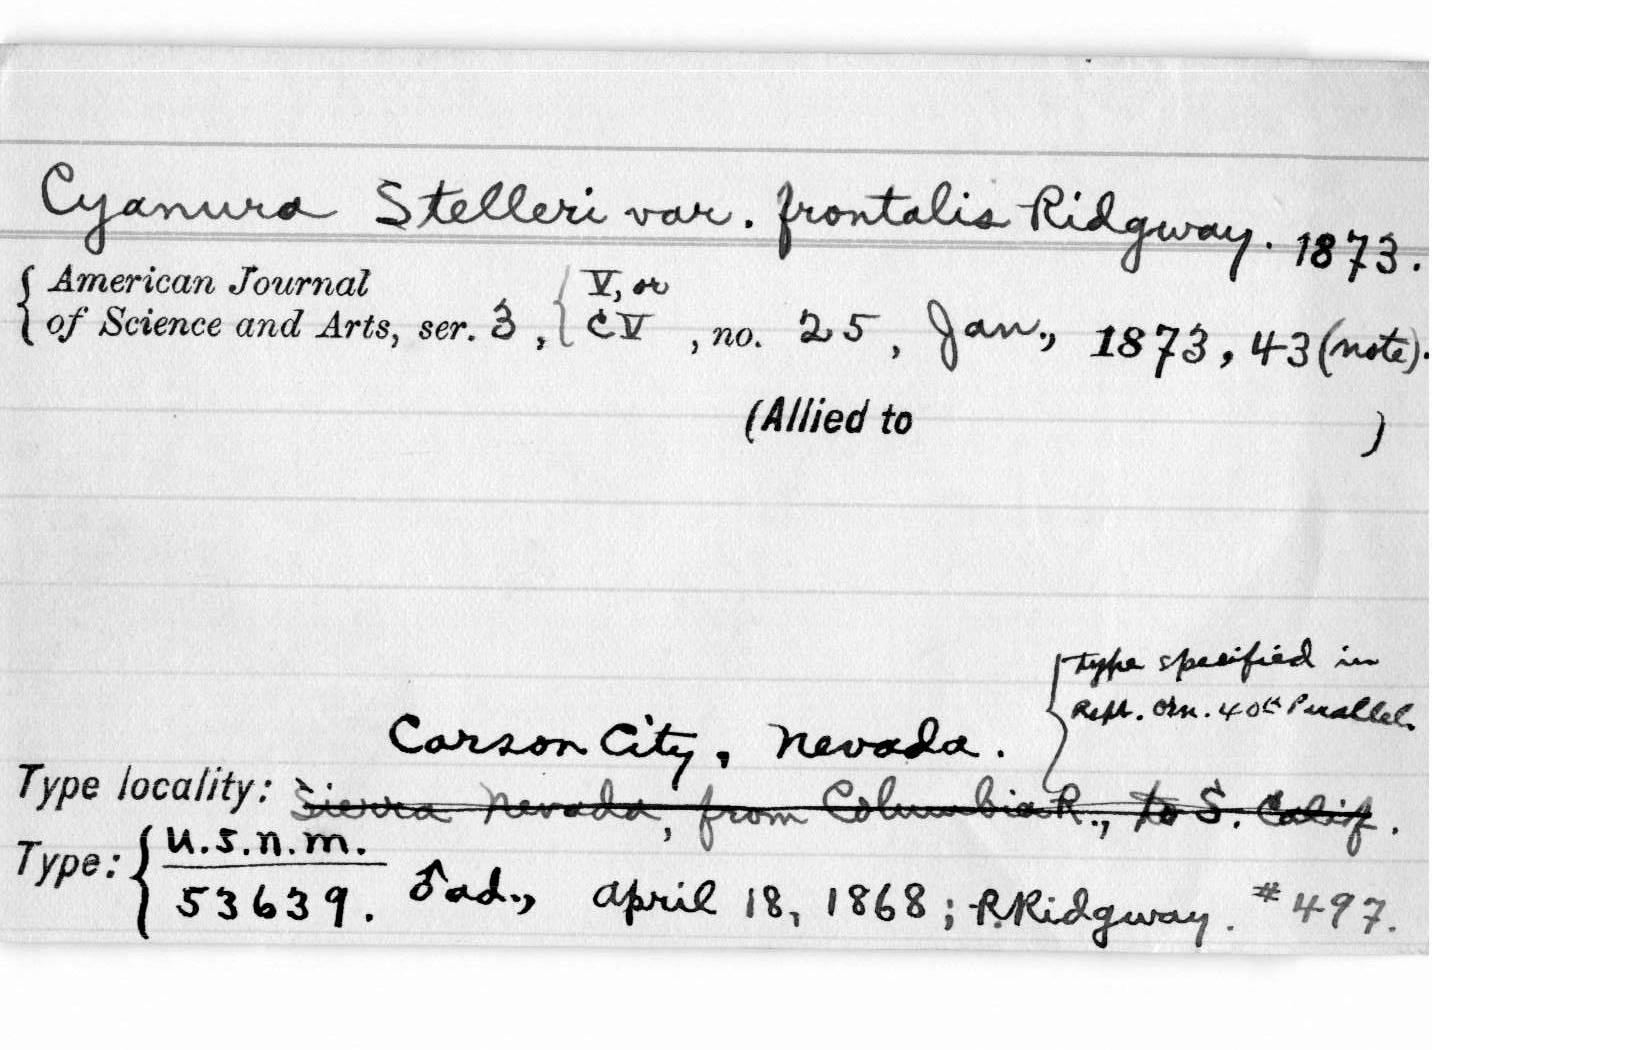 Cyanura Stelleri var. frontalis Ridgway. 1873.
American Journal
of Science and Arts, ser. 3, V, or CV, no. 25, Jan., 1873, 43 (note).
(Allied to )
Type specified in
Rept. Orn. 40th Parallel.
Carson City, Nevada.
Type locality: Sierra Nevada, from Columbia R., to S. Calif.
Type: U.S.N.M. 53639. ♂ ad., April 18, 1868; R. Ridgway. #497.